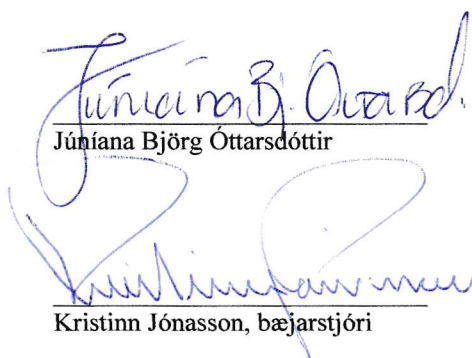 Júníana Bj. Óttarsd.
Júníana Björg Óttarsdóttir
Kristinn Jónasson
Kristinn Jónasson, bæjarstjóri